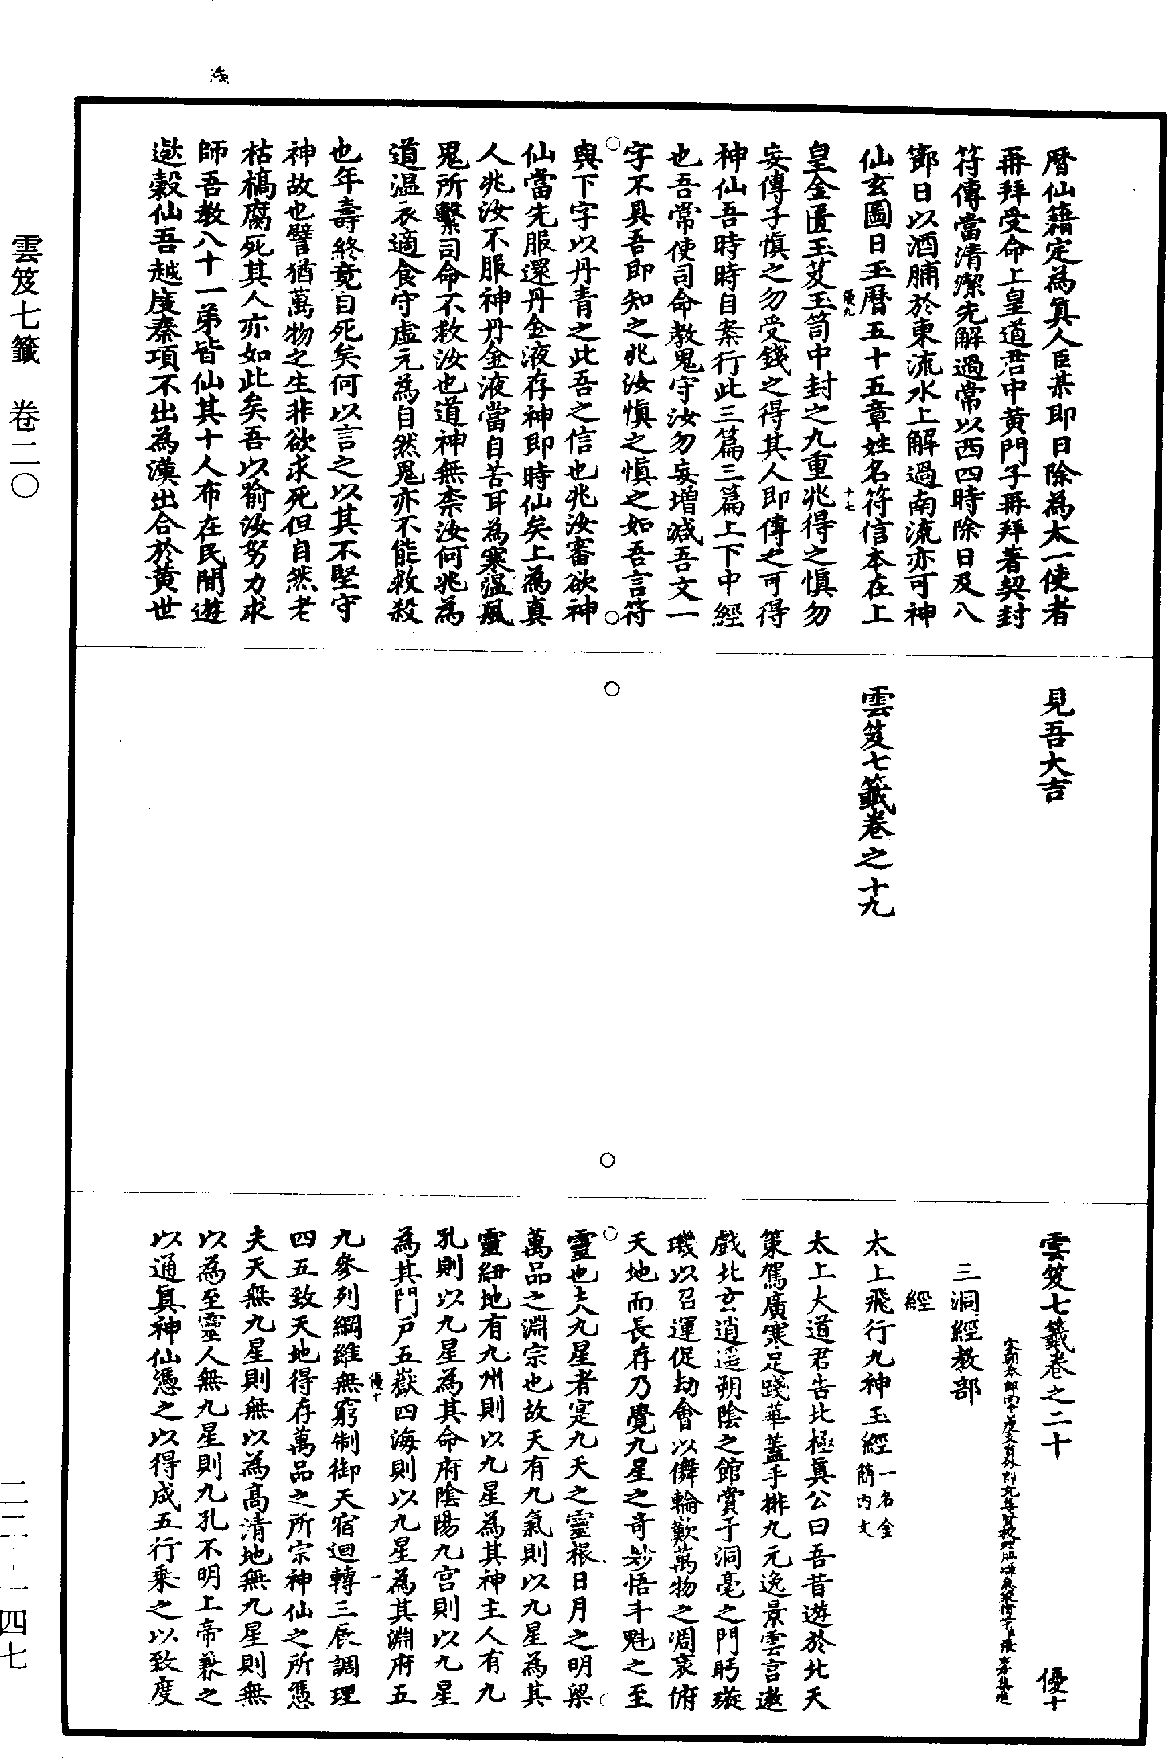 雲笈七籤 卷二〇
二二-一四七
曆仙籍定為真人臣某即日除為太一使者
再拜受命上皇道君中黃門子再拜著契封
符傳當清潔先解過常以四時除日及八
節日以酒脯於東流水上解過南流亦可神
仙玄圖曰玉曆五十五章姓名符信本在上
優九
十七
皇金匱玉艾玉笥中封之九重兆得之慎勿
妄傳子慎之勿受錢之得其人即傳之可得
神仙吾時時自案行此三篇三篇上下中經
也吾常使司命教鬼守汝勿妄增減吾文一
字不具吾即知之兆汝慎之慎之如吾言符
與下字以丹青之此吾之信也兆汝審欲神
仙當先服還丹金液存神即時仙矣上為真
人兆汝不服神丹金液當自苦耳為寒溫風
鬼所繫司命不救汝也道神無柰汝何兆為
道溫衣適食守虛无為自然鬼亦不能救殺
也年壽終竟自死矣何以言之以其不堅守
神故也譬猶萬物之生非欲求死但自然老
枯槁腐死其人亦如此矣吾以喻汝努力求
師吾教八十一弟皆仙其十人布在民間遊
遨穀仙吾越度秦項不出為漢出合於黃世
見吾大吉
雲笈七籤卷之十九
雲笈七籤卷之二十
優十
三洞經教部
經
太上飛行九神玉經一名金簡內文
太上大道君告北極真公曰吾昔遊於北天
策駕廣寒足踐華蓋手排九元逸景雲宮遨
戲北玄逍遥朔陰之館賞于洞毫之門眄璇
璣以召運促劫會以儛輪歎萬物之凋衰俯
天地而長存乃覺九星之奇妙悟斗魁之至
靈也夫九星者寔九天之靈根日月之明梁
萬品之淵宗也故天有九氣則以九星為其
靈紐地有九州則以九星為其神主人有九
孔則以九星為其命府陰陽九宮則以九星
為其門戶五嶽四海則以九星為其淵府五
優十
一
九參列綱維無窮制御天宿迴轉三辰調理
四五致天地得存萬品之所宗神仙之所憑
夫天無九星則無以為高清地無九星則無
以為至靈人無九星則九孔不明上帝秉之
以通真神仙憑之以得成五行乘之以致度